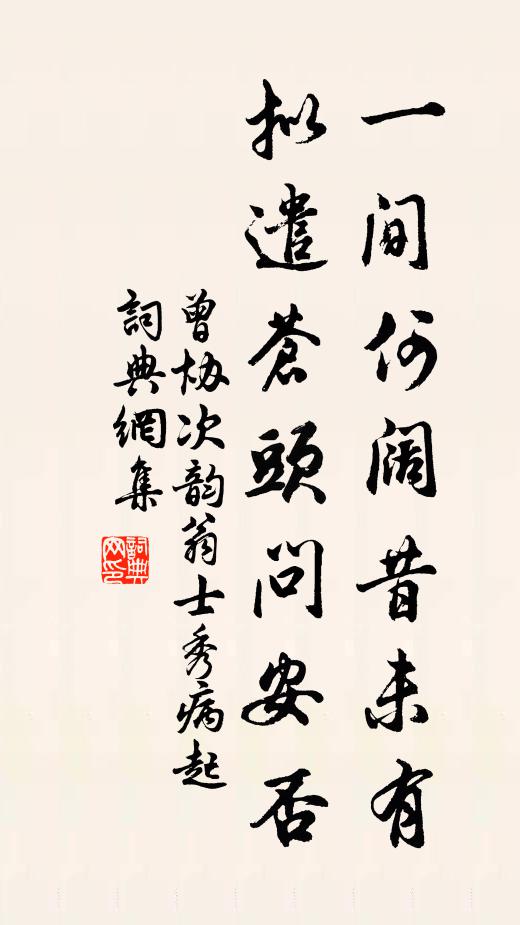 一间何阔昔未有
拟遣苍頭问安否
曾协次韵翁士秀病起
詞典網集
詞典网印